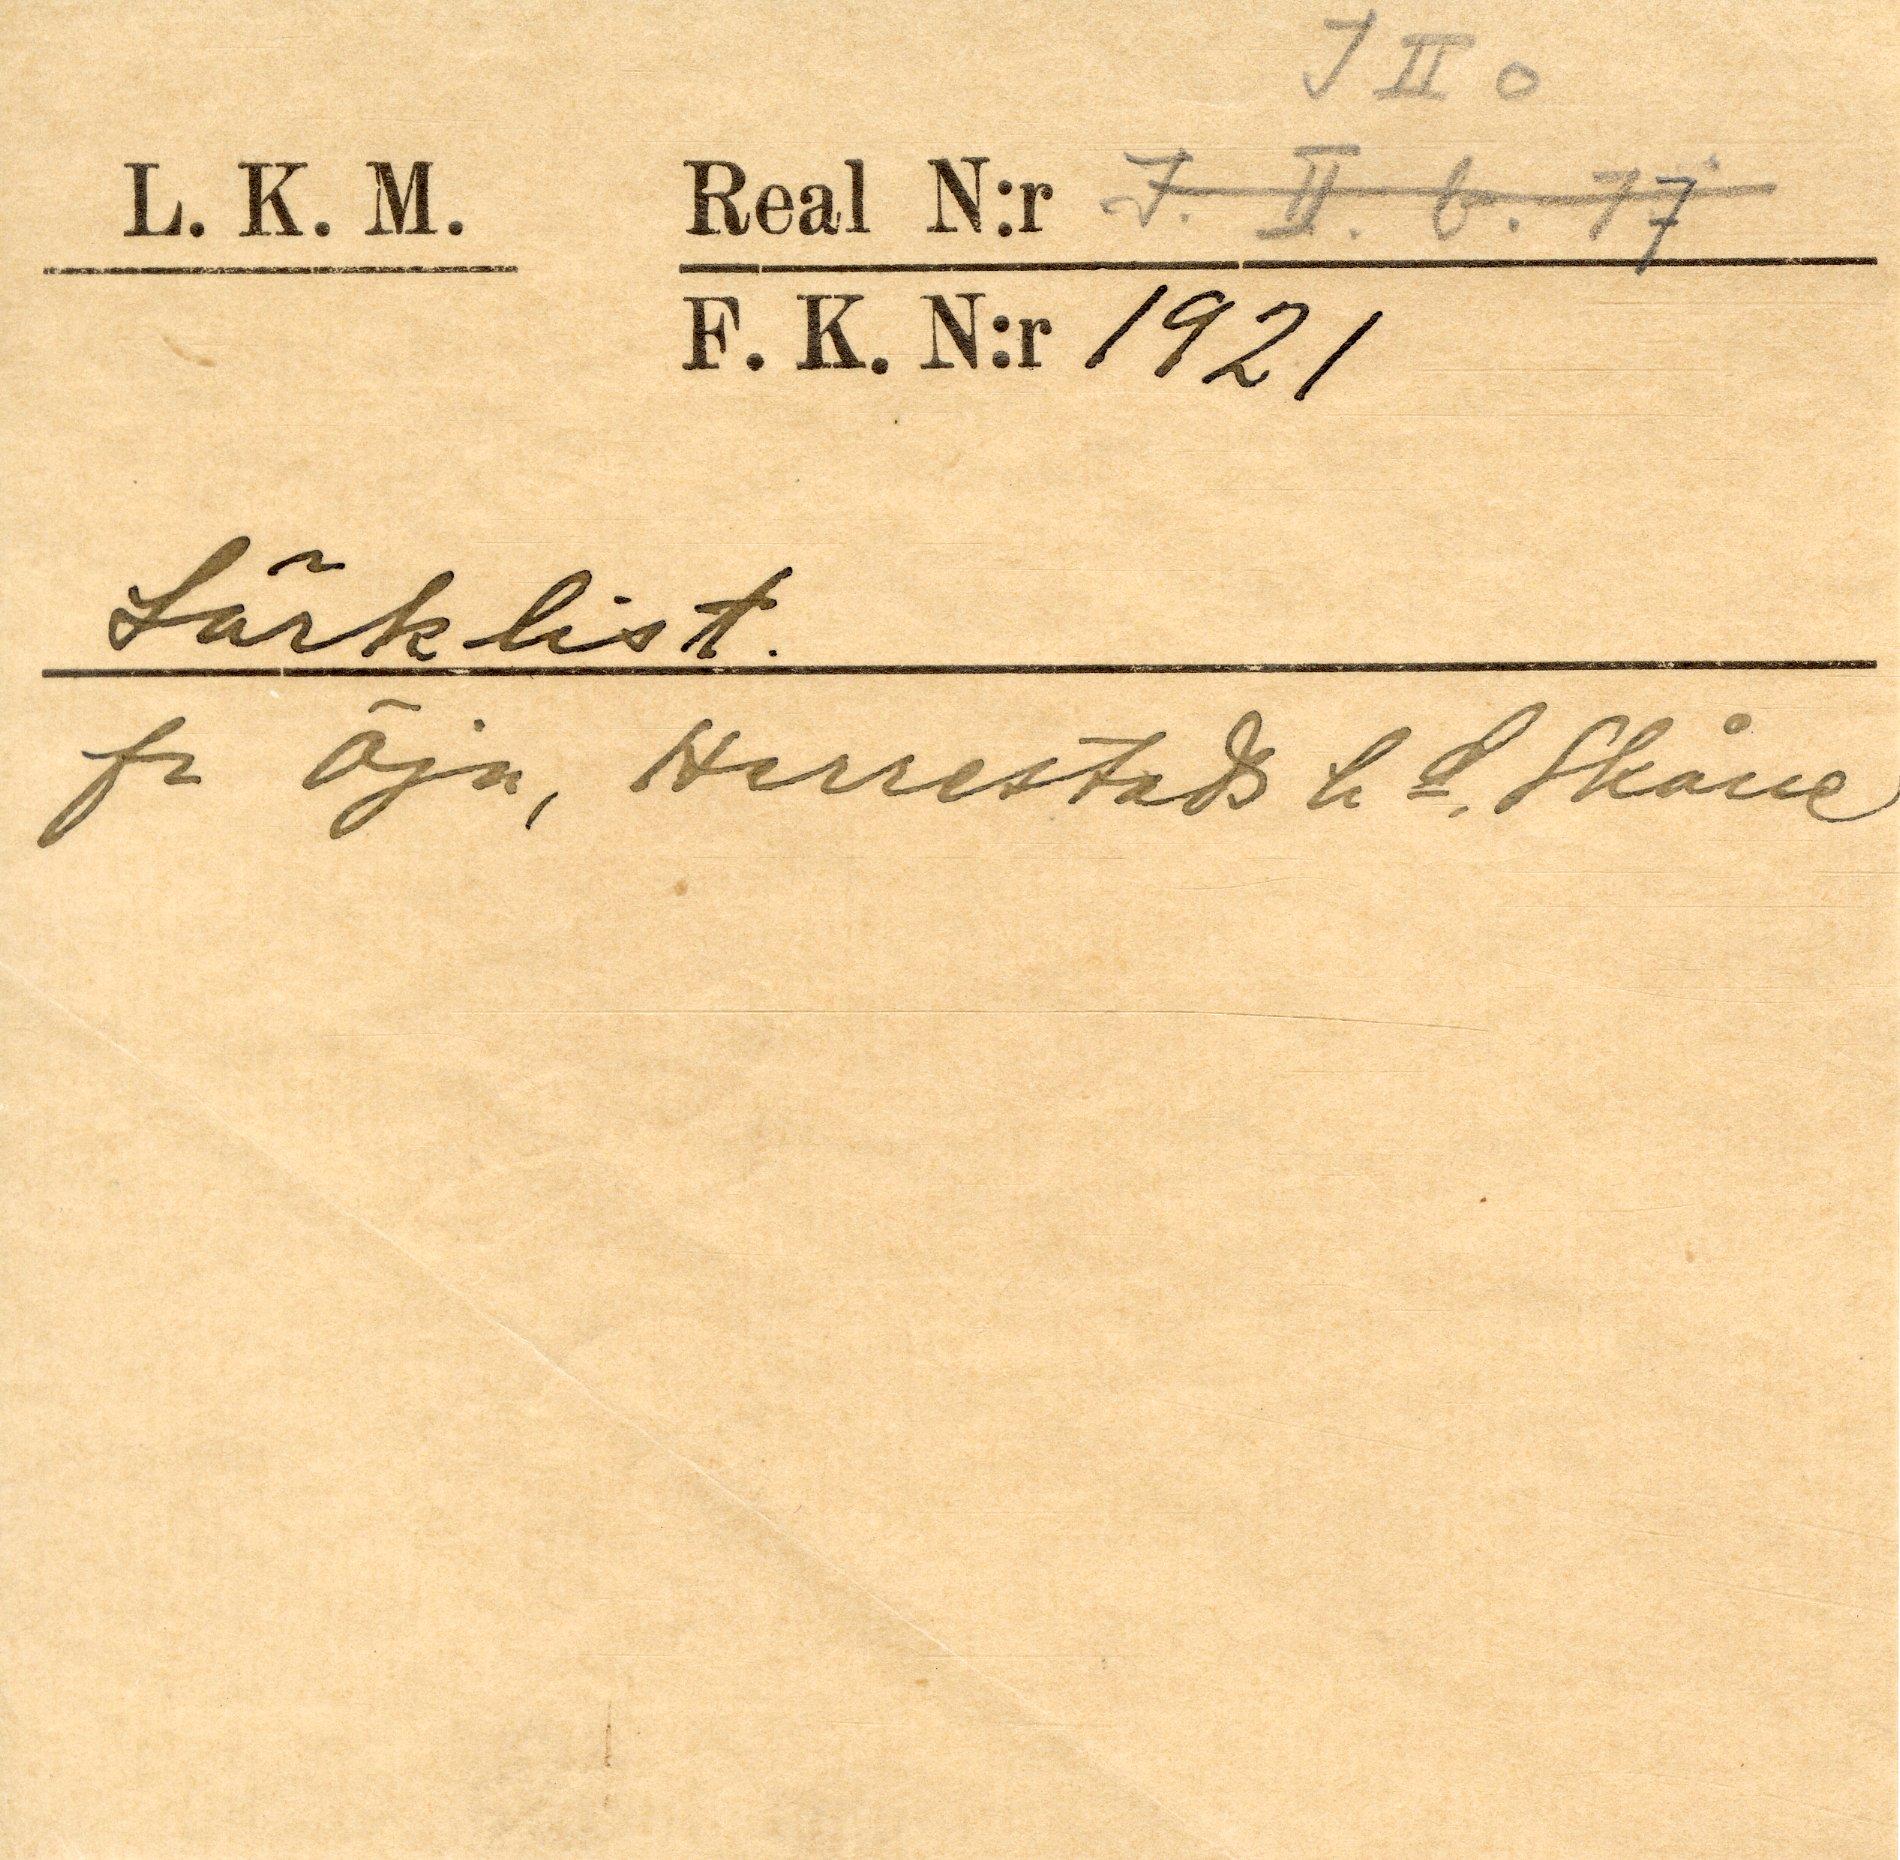 J II o
L. K. M. Real N:r J. II. b. 17
F. K. N:r 1921
Lärklist.
fr Öja, Herrestads hd, Skåne